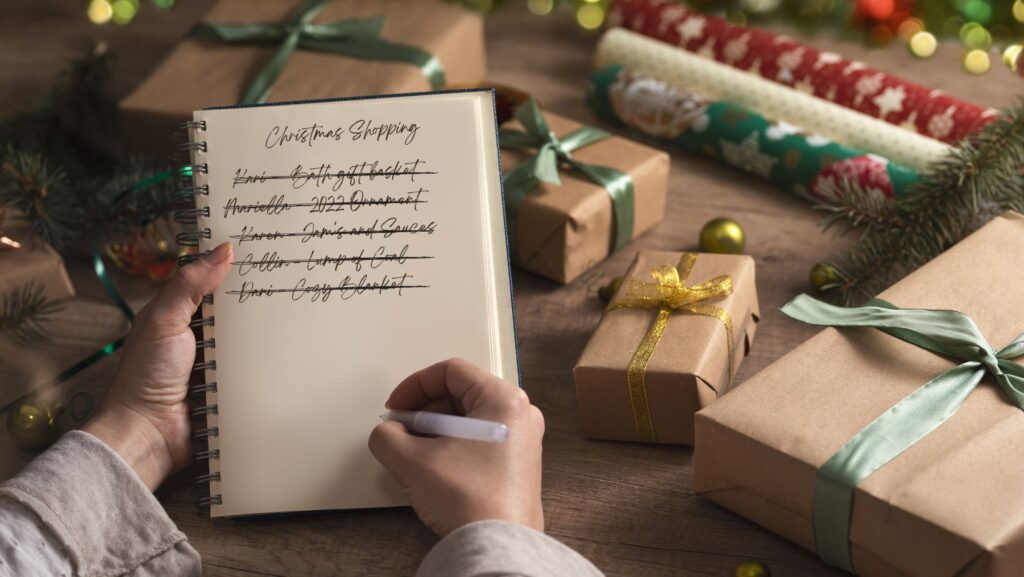 Christmas Shopping
Kari - Bath gift basket
Aurielle - 2022 Ornament
Karen - Jams and Sauces
Collin - Lump of Coal
Dani - Cozy Blanket